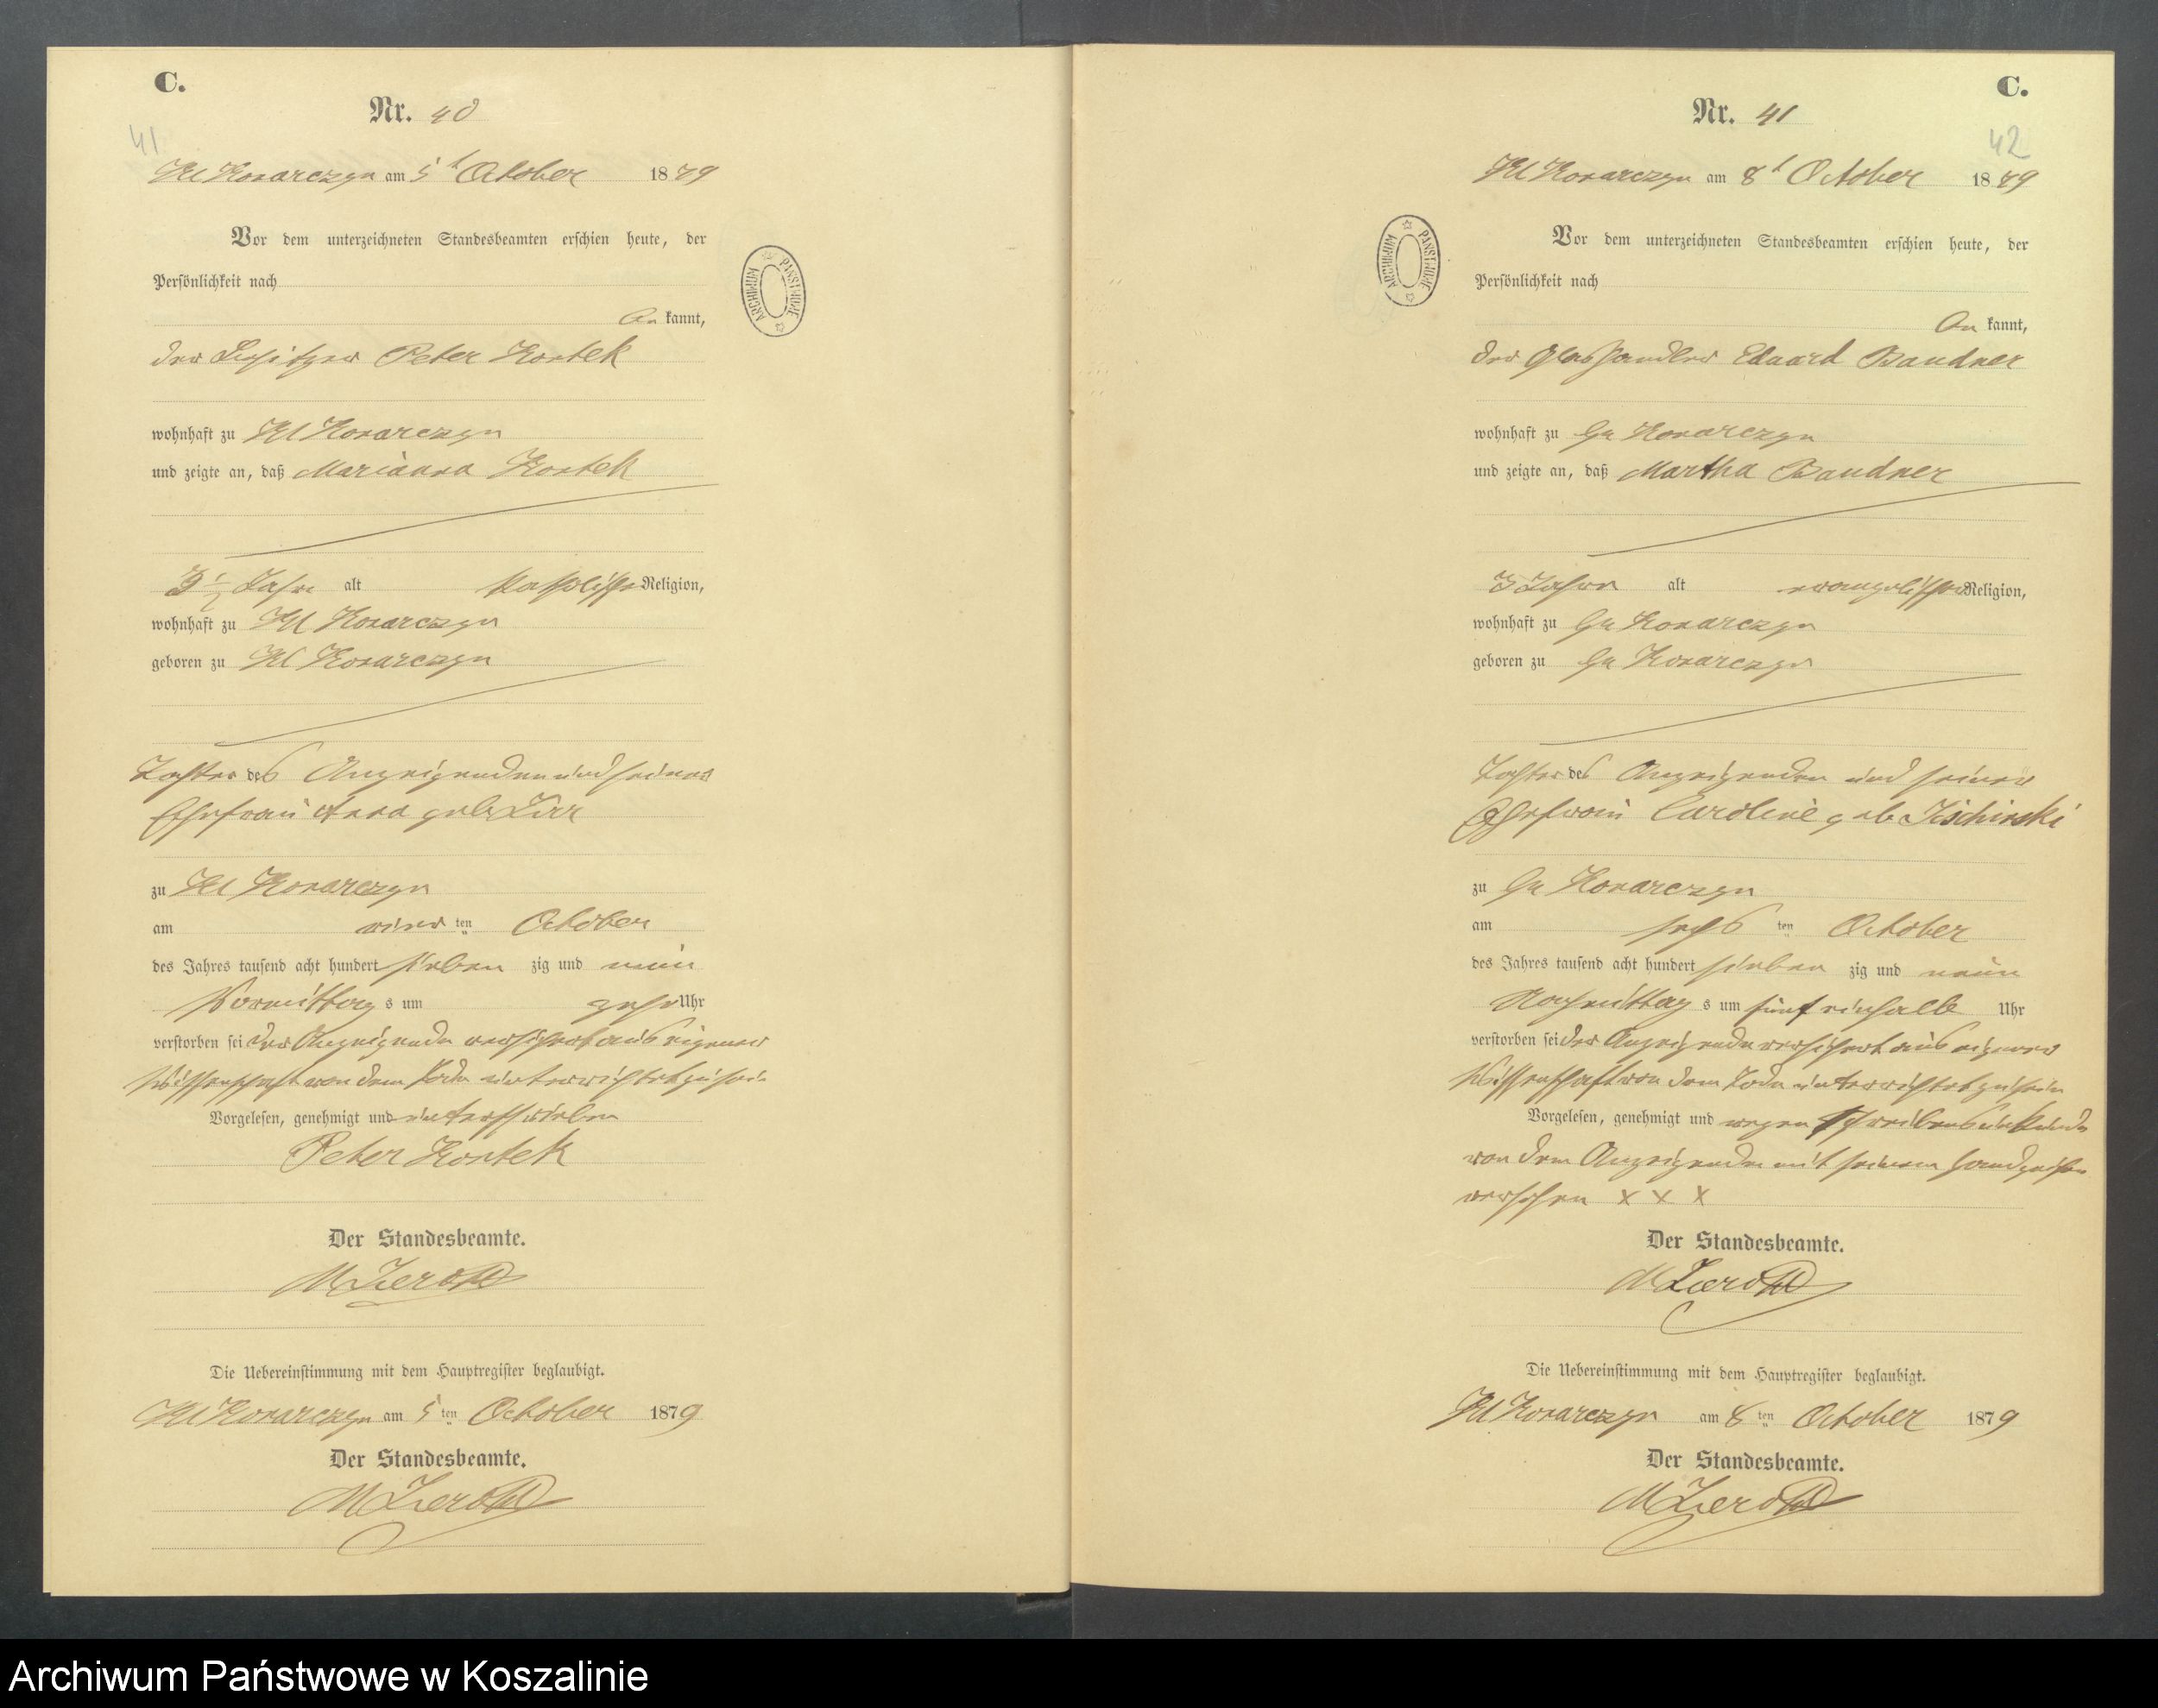 C.
Nr. 40
41
Kl Konarczyn am 5t October 1879
Vor dem unterzeichneten Standesbeamten erschien heute, der
Persönlichkeit nach
kannt,
der Besitzer Peter Kontek
wohnhaft zu Kl Konarczyn
und zeigte an, daß Marianna Kontek
Jahr alt katholischer Religion,
wohnhaft zu Kl Konarczyn
geboren zu Kl Konarczyn
Tochter des Anzeigenden und seiner
Ehefrau Anna geb
zu Kl Konarczyn
am ten October
des Jahres tausend acht hundert sieben zig und neun
Vormittags um zehn Uhr
verstorben sei der Anzeigende versichert aus eigener
Wissenschaft von dem Tode unterrichtet zu sein
Vorgelesen, genehmigt und unterschrieben
Peter Kontek
Der Standesbeamte.
Die Uebereinstimmung mit dem Hauptregister beglaubigt.
Kl Konarczyn am 5ten October 1879
Der Standesbeamte.
C.
Nr. 41
42
Kl Konarczyn am 8t October 1879
Vor dem unterzeichneten Standesbeamten erschien heute, der
Persönlichkeit nach
kannt,
der Glashändler Eduard Baudner
wohnhaft zu Gr Konarczyn
und zeigte an, daß Martha Baudner
3 Jahre alt evangelischer Religion,
wohnhaft zu Gr Konarczyn
geboren zu Gr Konarczyn
Tochter des Anzeigenden und seiner
Ehefrau Caroline geb
zu Gr Konarczyn
am sechsten October
des Jahres tausend acht hundert sieben zig und neun
Nachmittags um fünf einhalb Uhr
verstorben sei der Anzeigende versichert aus eigener
Wissenschaft von dem Tode unterrichtet zu sein
Vorgelesen, genehmigt und wegen Schreibensunkunde
von dem Anzeigenden mit seinem Handzeichen
versehen x x x
Der Standesbeamte.
Die Uebereinstimmung mit dem Hauptregister beglaubigt.
Kl Konarczyn am 8ten October 1879
Der Standesbeamte.
ARCHIWUM PAŃSTWOWE
ARCHIWUM PAŃSTWOWE
Archiwum Państwowe w Koszalinie